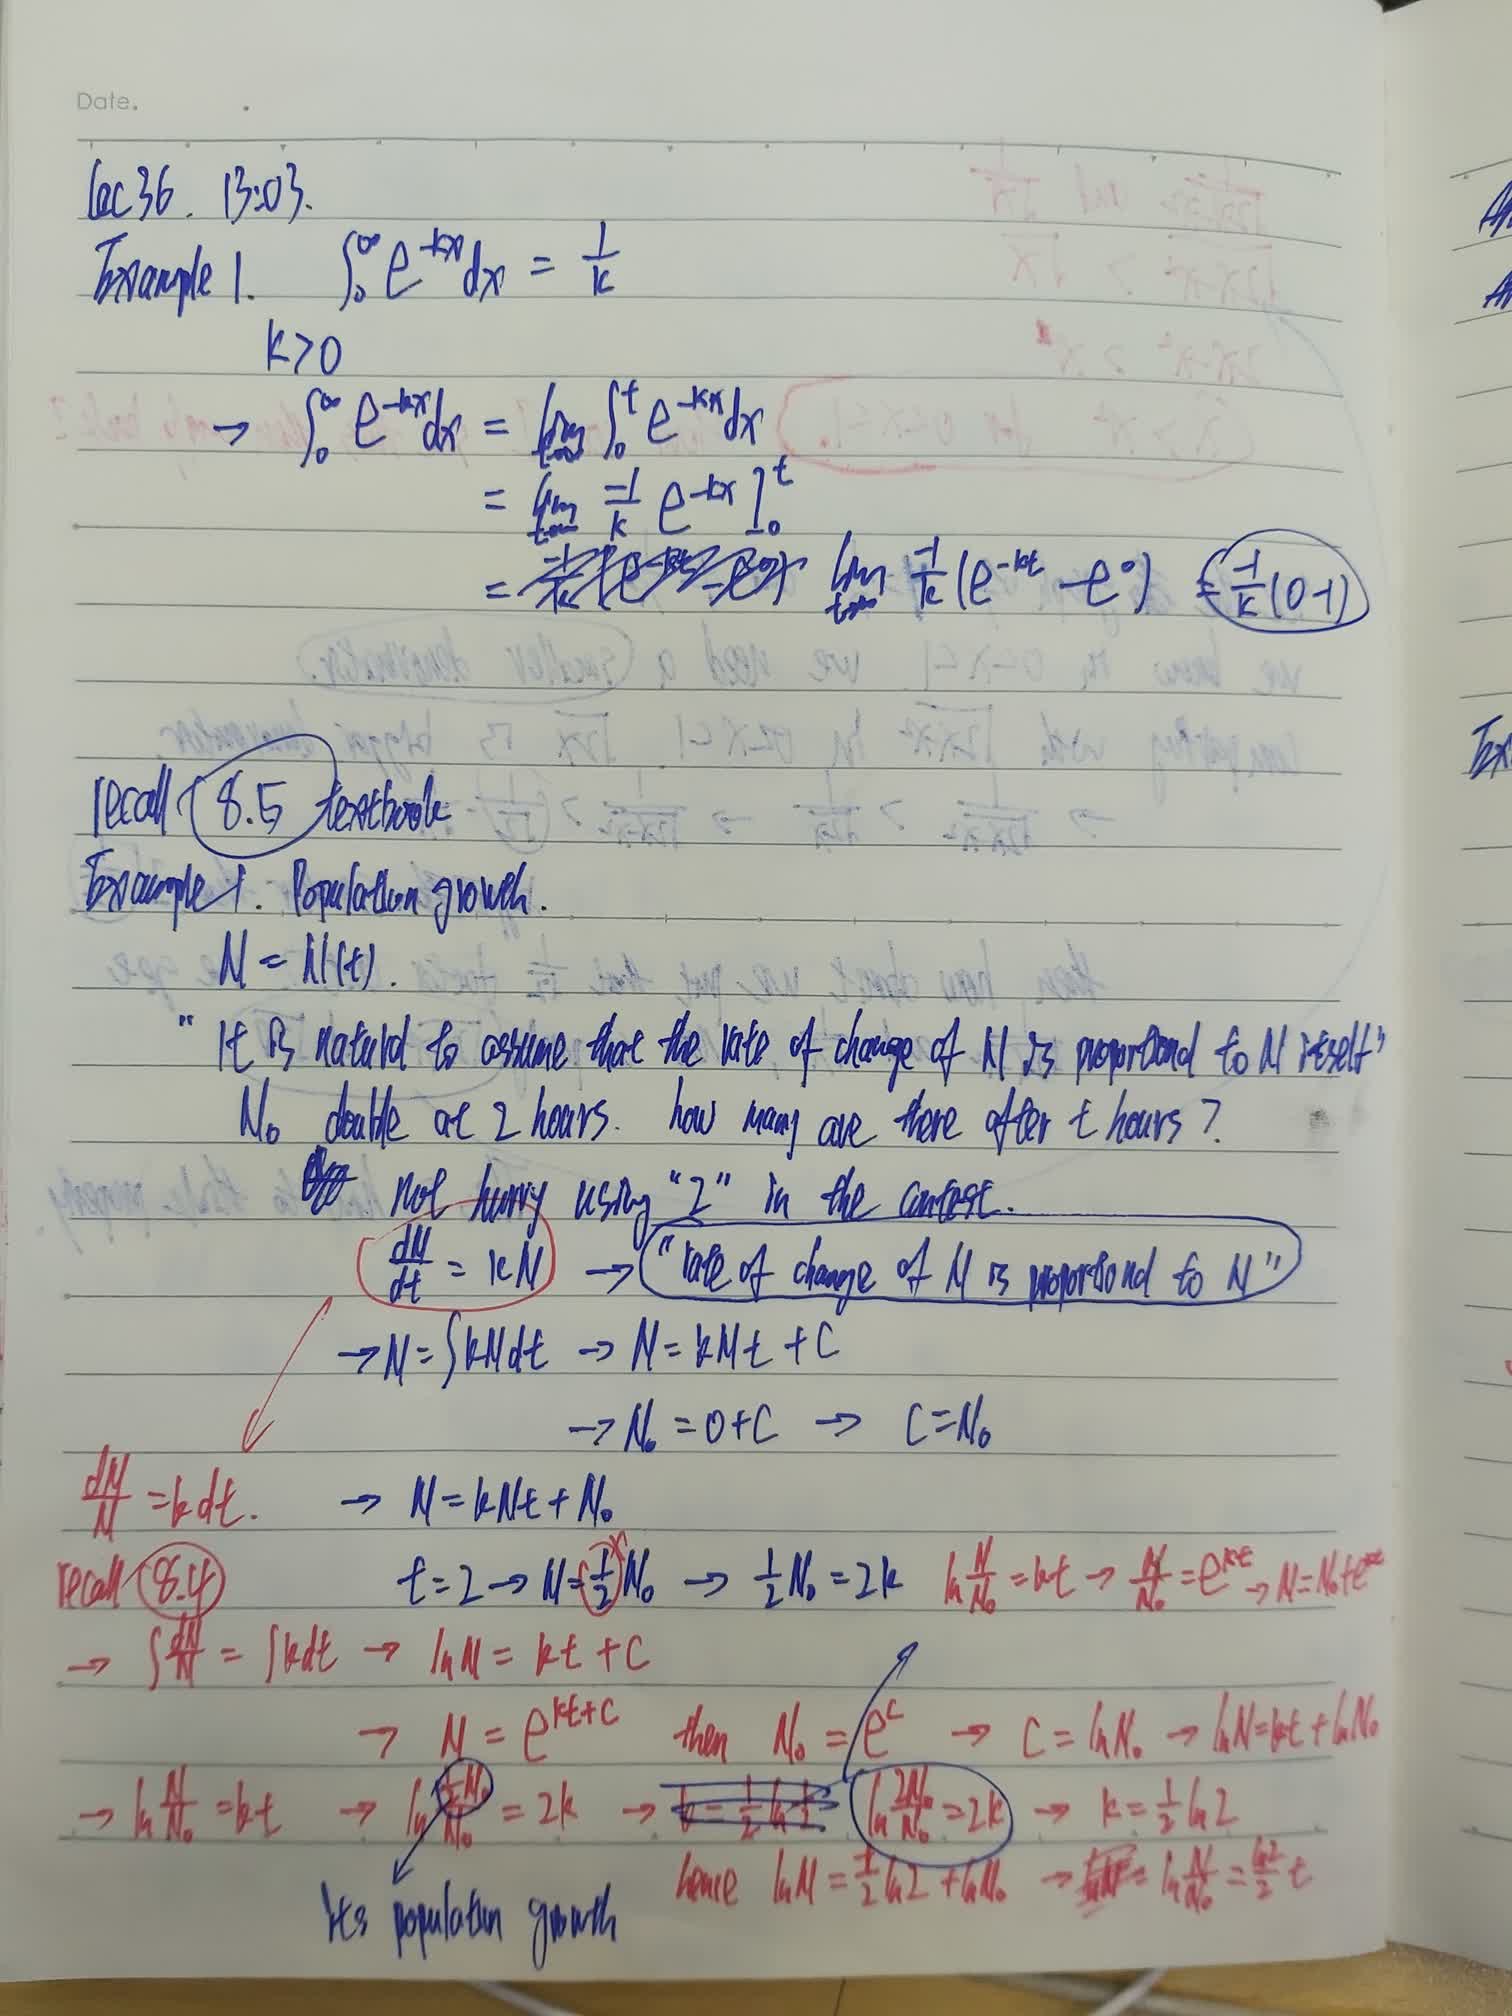 Date.
Lec 36. 13:03.
Example 1. ∫₀^∞ e^{-kx} dx = 1/k
k>0
→ ∫₀^∞ e^{-kx} dx = lim_{t→∞} ∫₀^t e^{-kx} dx
= lim_{t→∞} -1/k e^{-kx} ]₀^t
= lim_{t→∞} -1/k (e^{-kt} - e^0) = -1/k (0-1)
recall 8.5 textbook.
Example 1. Population growth.
N = N(t).
"It is natural to assume that the rate of change of N is proportional to N itself"
N₀ double at 2 hours. how many are there after t hours?
not hurry using "2" in the context.
dN/dt = kN → "rate of change of N is proportional to N"
→ N = ∫kNdt → N = kNt + C
→ N₀ = 0+C → C = N₀
dN/N = kdt. → N = kNt + N₀
recall 8.4 t=2 → N = 1/2 N₀ → 1/2 N₀ = 2k ln N/N₀ = kt → N/N₀ = e^{kt} → N = N₀ e^{kt}
→ ∫ dN/N = ∫kdt → ln N = kt + C
→ N = e^{kt+C} then N₀ = e^C → C = ln N₀ → ln N = kt + ln N₀
→ ln N/N₀ = kt → ln (1/2 N₀)/N₀ = 2k → ln 2N₀/N₀ = 2k → k = 1/2 ln 2
hence ln N = 1/2 ln 2 + ln N₀ → ln N/N₀ = ln2/2 t
it's population growth